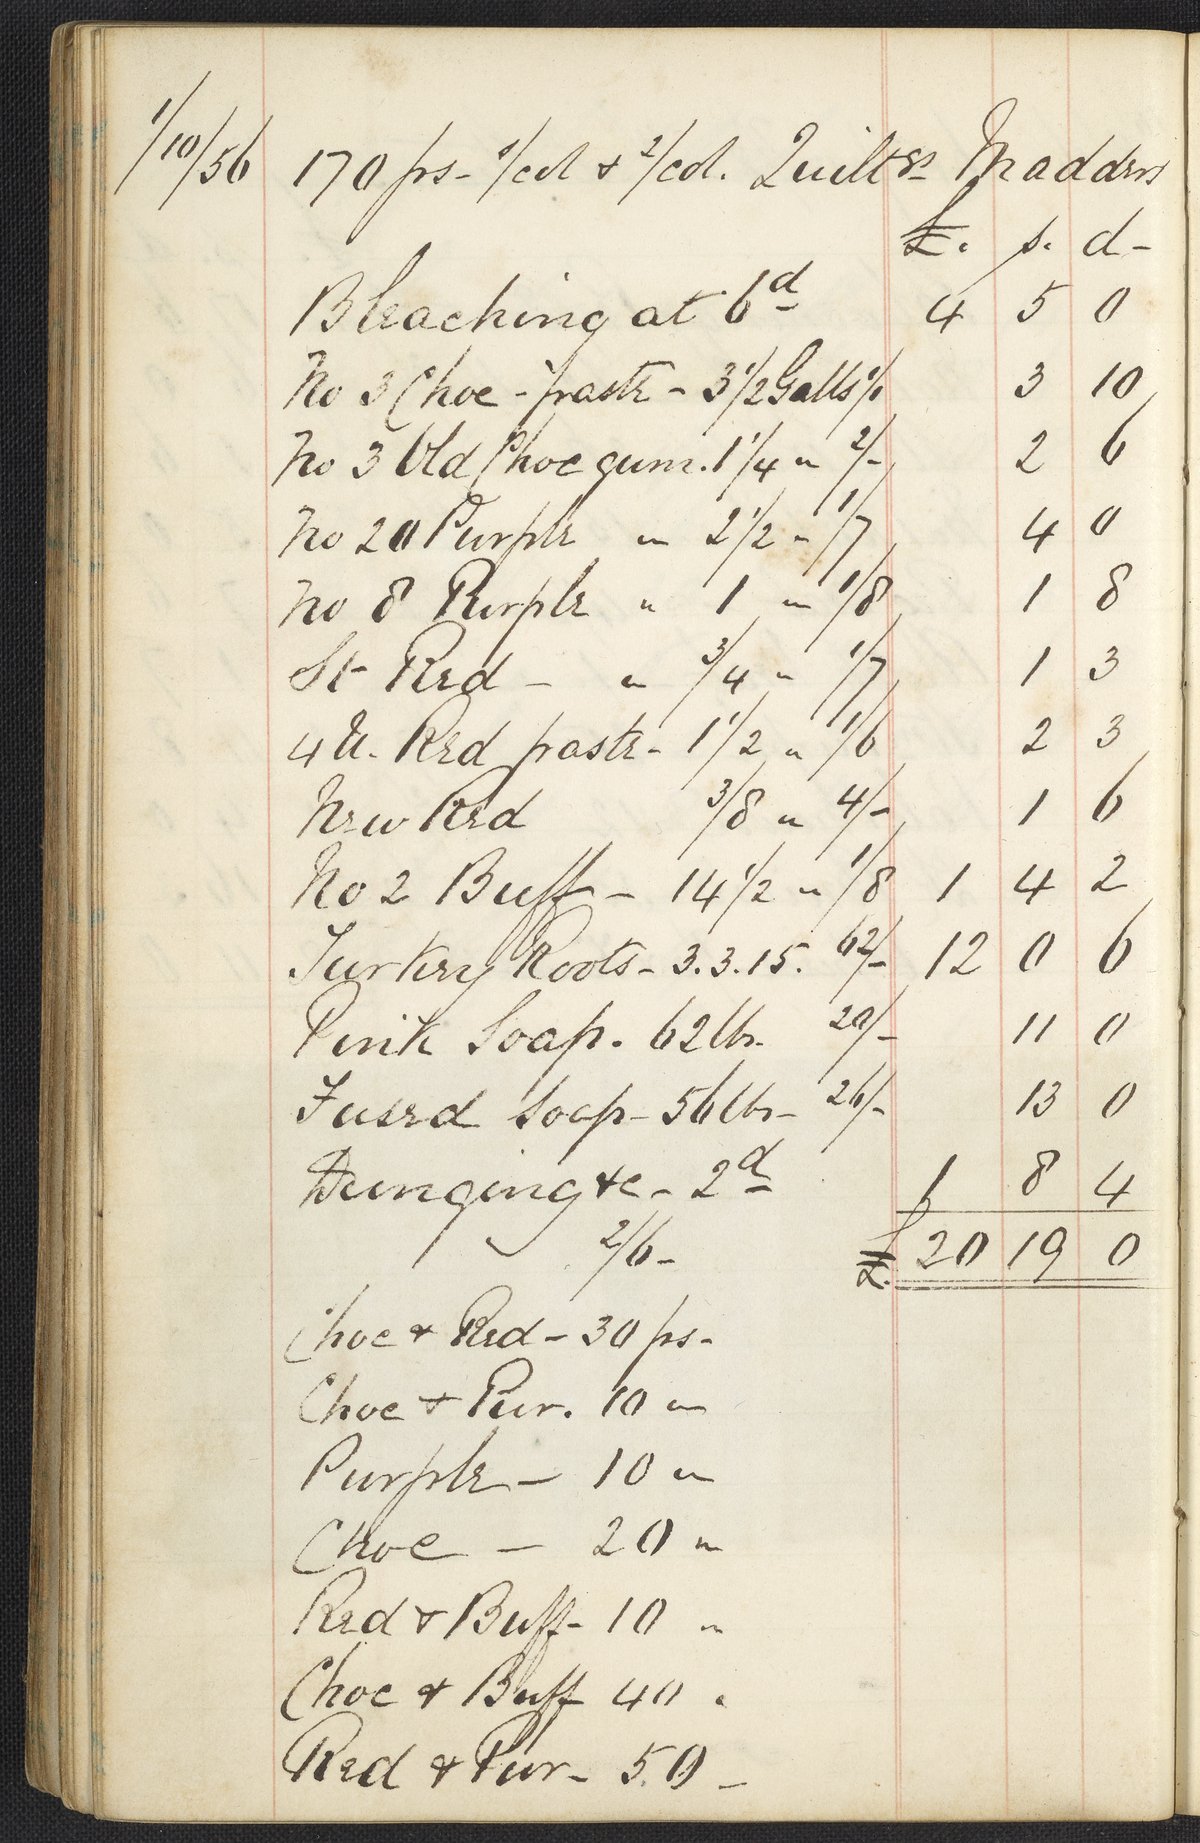 1/10/56 170 ps - 1/col & 2/col. Quiltgs Madders
£. s. d -
Bleaching at 6d 4 5 0
No 3 Choc - paste - 3 1/2 Galls 1/1 3 10
No 3 Old Choc gum. 1 1/4 " 2/- 2 6
No 20 Purple " 2 1/2 " 1/7 4 0
No 8 Purple " 1 " 1/8 1 8
St Red - " 3/4 " 1/7 1 3
4 lb. Red paste - 1 1/2 " 1/6 2 3
New Red 3/8 " 4/- 1 6
No 2 Buff - 14 1/2 " 1/8 1 4 2
Turkey Roots - 3.3.15. 62/- 12 0 6
Pink Soap. 62 lbs. 20/- 11 0
Fused Soap - 56 lbs - 26/- 13 0
Dunging &c - 2d 1 8 4
2/6 - £ 20 19 0
Choc & Red - 30 ps -
Choc & Pur. 10 "
Purple - 10 "
Choc - 20 "
Red & Buff - 10 "
Choc & Buff 40 "
Red & Pur - 50 -